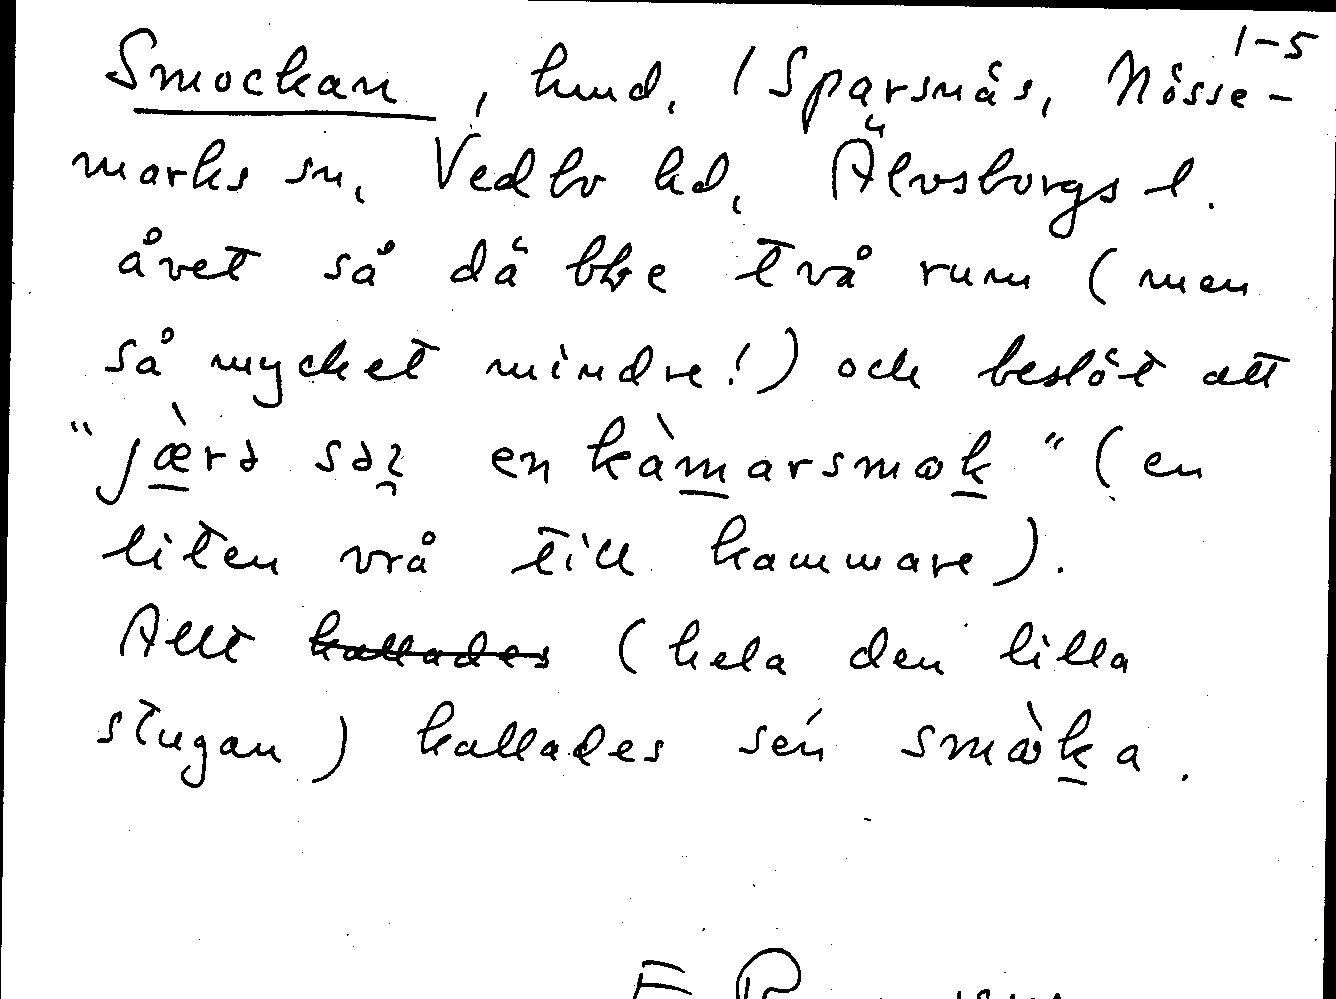 1-5
Smockan, hmd. /Sparsnäs, Nösse-
marks sn, Vedbo hd, Älvsborgs l.
åvet så dä ble två rum (men
så mycket mindre!) och beslöt att
"jæ̀rə səɀ en kàmarsmωk" (en
liten vrå till kammare).
Allt kallades (hela den lilla
stugan) kallades sén smὼka.